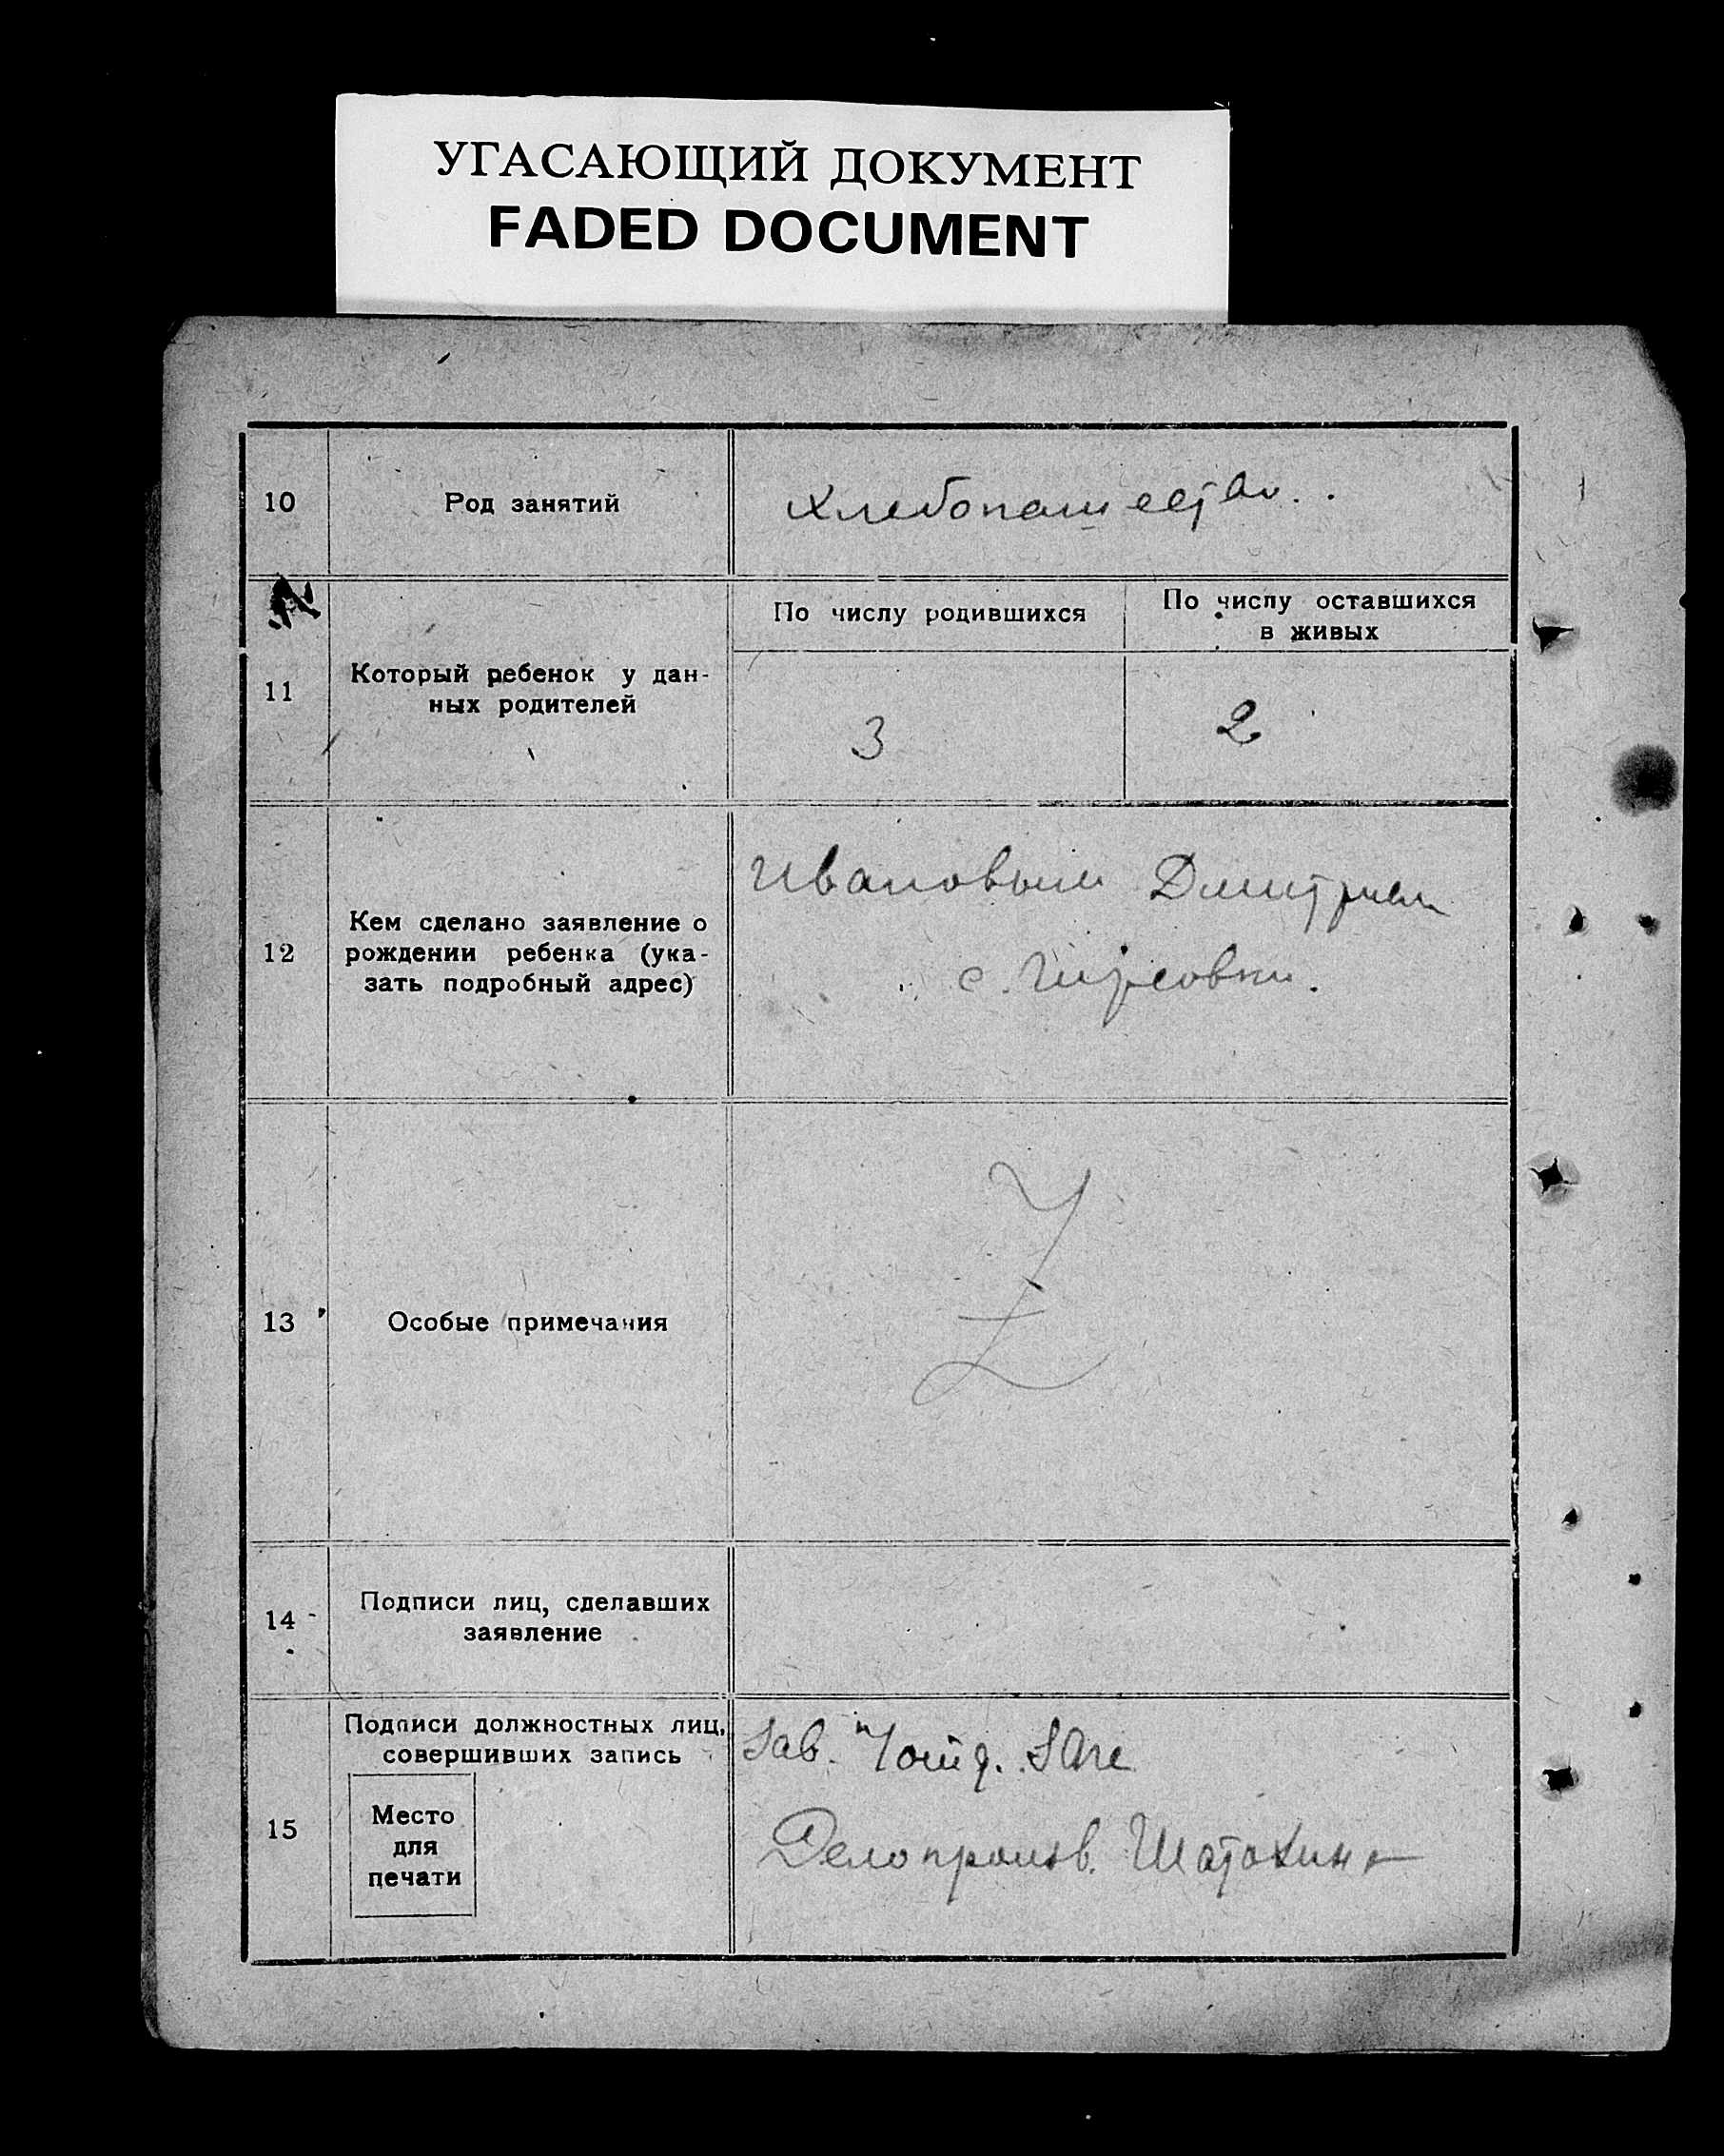 УГАСАЮЩИЙ ДОКУМЕНТ
FADED DOCUMENT
10
Род занятий
Хлебопашество.
11
Который ребенок у дан-
ных родителей
По числу родившихся
По числу оставшихся
в живых
3
2
12
Кем сделано заявление о
рождении ребенка (ука-
зать подробный адрес)
Ивановым Дмитрием
с.
13
Особые примечания
14
Подписи лиц, сделавших
заявление
15
Подписи должностных лиц,
совершивших запись
Место
для
печати
Зав.
Делопроизв. Шатохин